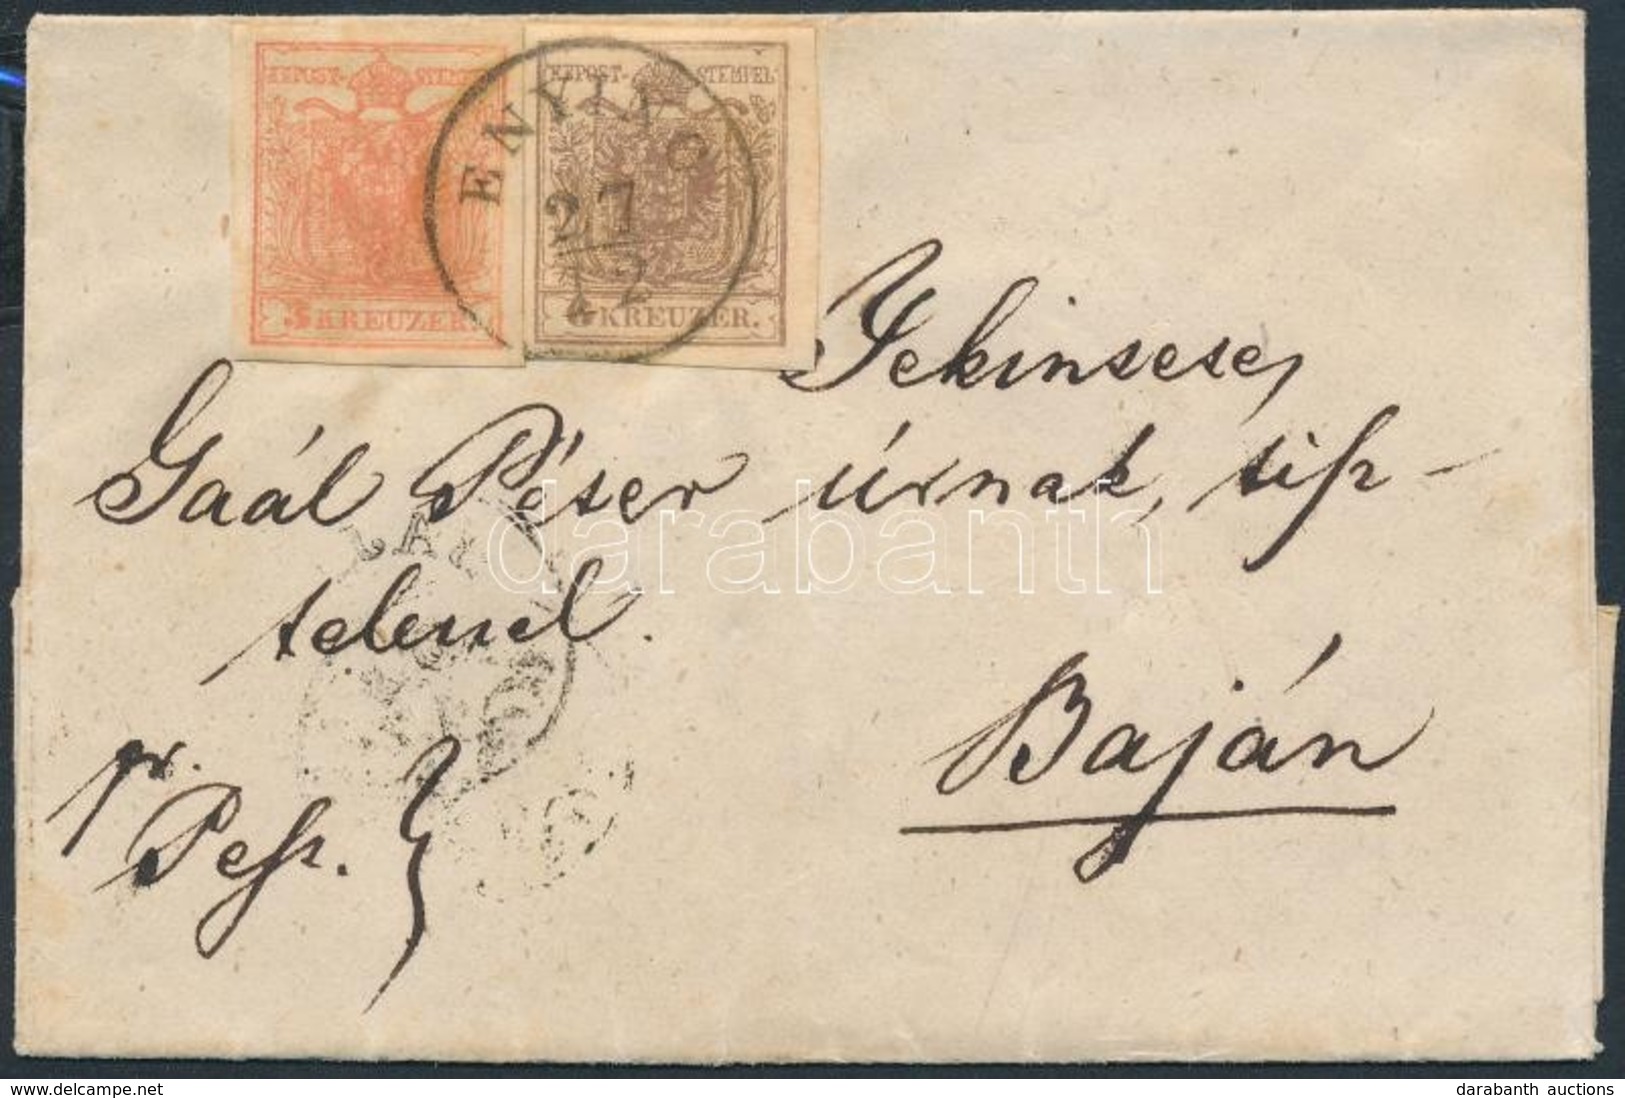 KKPOST-STEMPEL
3 KREUZER.
KKPOST-STEMPEL
6 KREUZER.
ENYING
27
12
Tekinsese,
Gaál Péter úrnak, tisz-
telettel.
pr.
Pest.
Baján
darabanth
www.delcampe.net
darabanth auctions